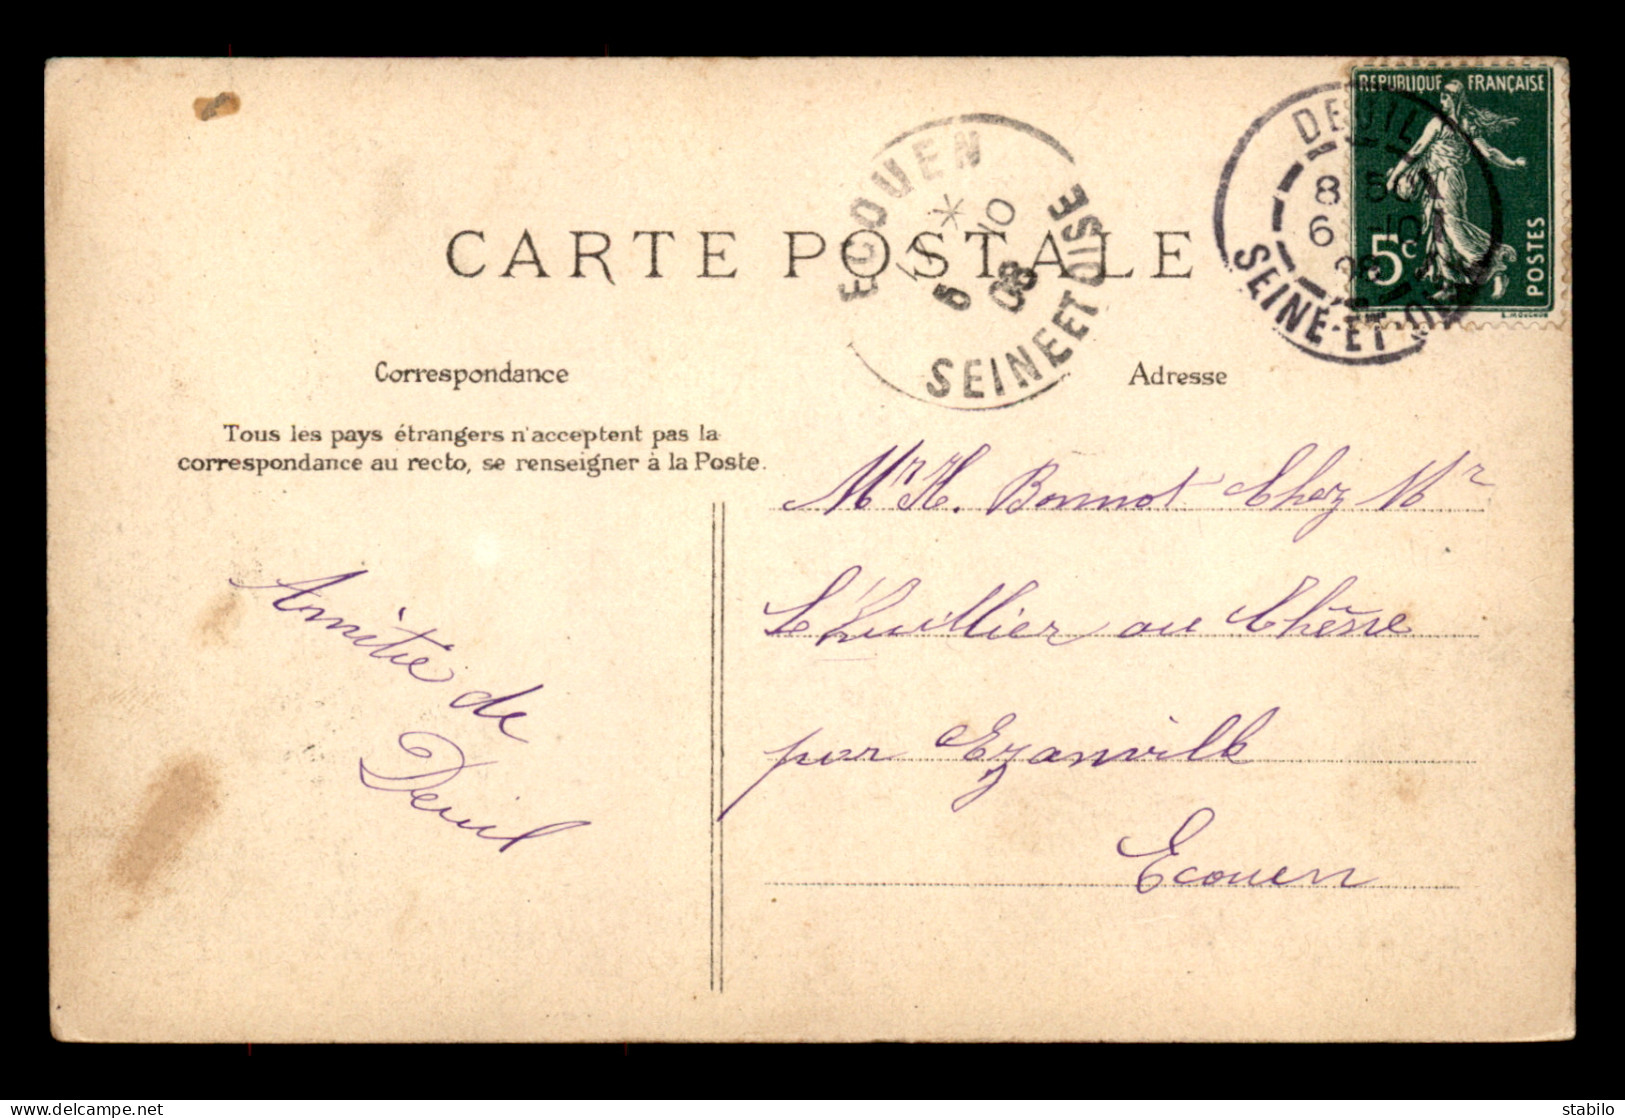 REPUBLIQUE FRANÇAISE
5c POSTES
DEUIL
8 50
6 -10
08
SEINE-ET-OISE
ECOUEN
* 10
5 08
SEINE ET OISE
CARTE POSTALE
Correspondance
Adresse
Tous les pays étrangers n'acceptent pas la
correspondance au recto, se renseigner à la Poste.
Mr H. Bonnot Chez Mr
L'huillier au Chêsne
par Ezanville
Ecouen
Amitie de
Deuil
stabilo